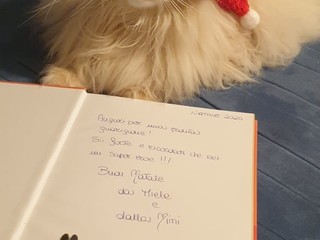 Natale 2020
Auguri per una pronta
guarigione!
Sii forte e ricordati che sei
un super eroe!!!
Buon Natale
da Miele
e
dalla Mimi